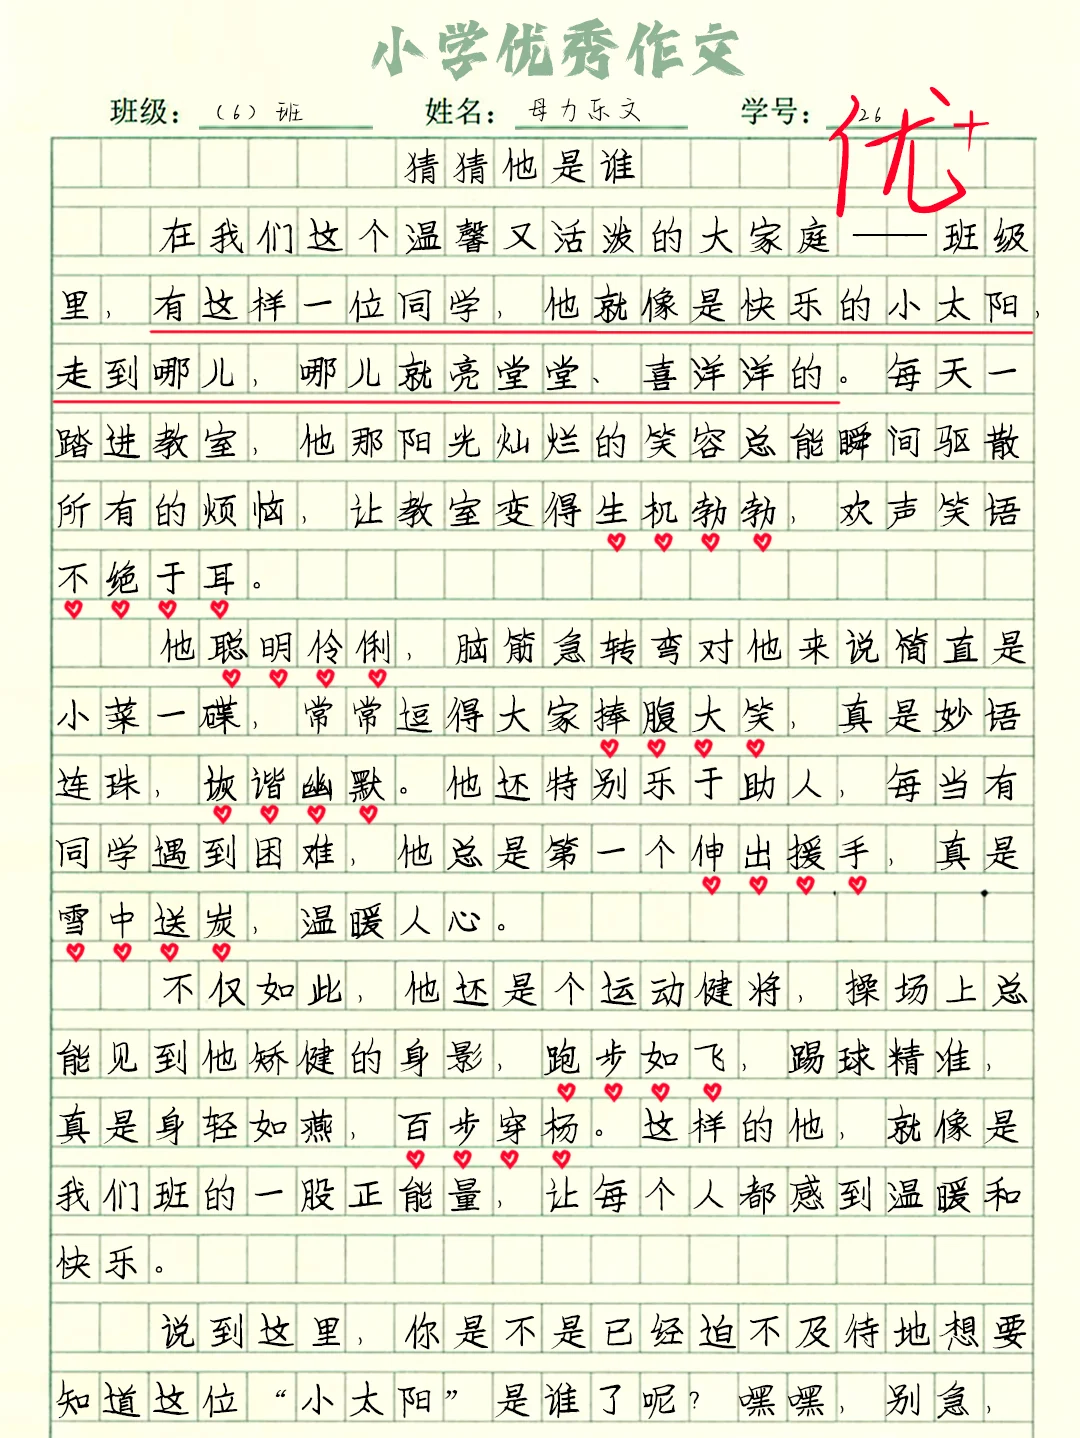 小学优秀作文
班级：（6）班 姓名：母力乐文 学号：26
优+
猜猜他是谁
在我们这个温馨又活泼的大家庭——班级
里，有这样一位同学，他就像是快乐的小太阳，
走到哪儿，哪儿就亮堂堂、喜洋洋的。每天一
踏进教室，他那阳光灿烂的笑容总能瞬间驱散
所有的烦恼，让教室变得生机勃勃，欢声笑语
不绝于耳。
他聪明伶俐，脑筋急转弯对他来说简直是
小菜一碟，常常逗得大家捧腹大笑，真是妙语
连珠，诙谐幽默。他还特别乐于助人，每当有
同学遇到困难，他总是第一个伸出援手，真是
雪中送炭，温暖人心。
不仅如此，他还是个运动健将，操场上总
能见到他矫健的身影，跑步如飞，踢球精准，
真是身轻如燕，百步穿杨。这样的他，就像是
我们班的一股正能量，让每个人都感到温暖和
快乐。
说到这里，你是不是已经迫不及待地想要
知道这位“小太阳”是谁了呢？嘿嘿，别急，